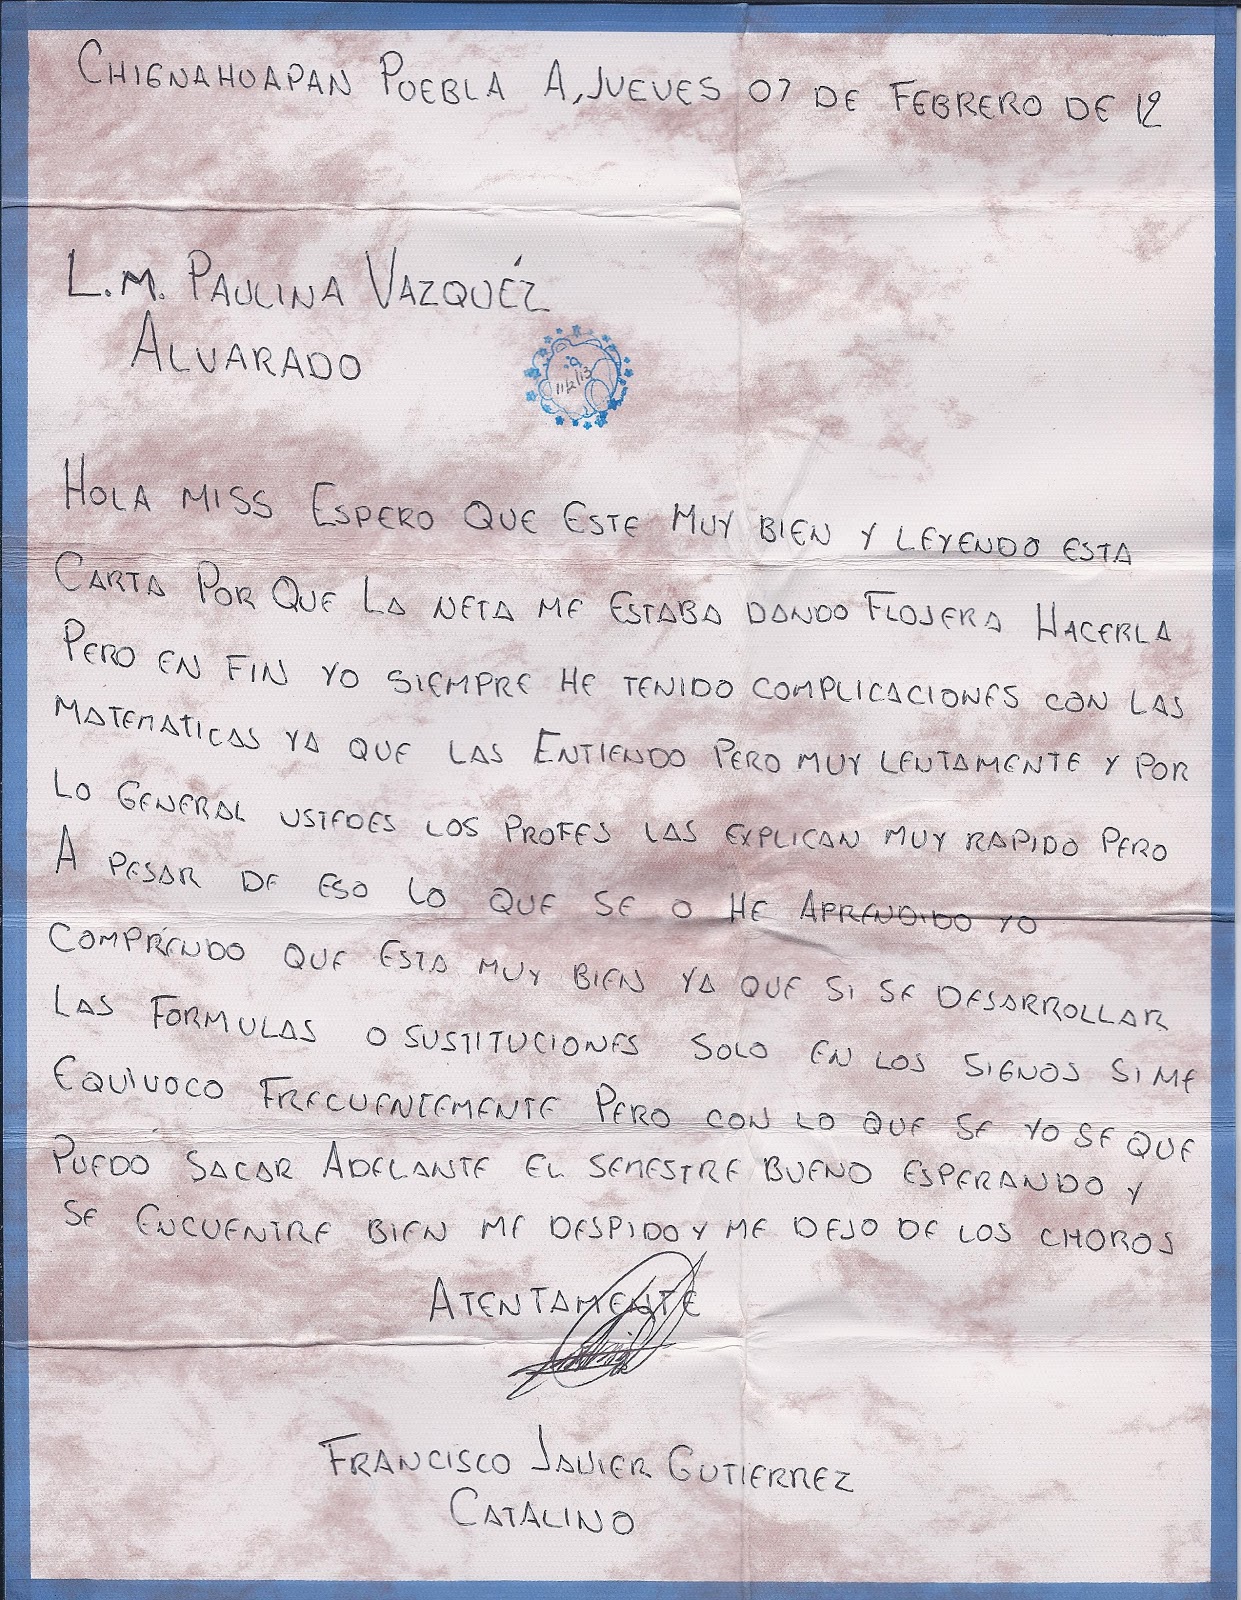 CHIGNAHUAPAN PUEBLA A, JUEVES 07 DE FEBRERO DE 12
L.M. PAULINA VAZQUÉZ
ALVARADO
11/2/13
HOLA MISS ESPERO QUE ESTE MUY BIEN Y LEYENDO ESTA
CARTA POR QUE LA NETA ME ESTABA DANDO FLOJERA HACERLA
PERO EN FIN YO SIEMPRE HE TENIDO COMPLICACIONES CON LAS
MATEMATICAS YA QUE LAS ENTIENDO PERO MUY LENTAMENTE Y POR
LO GENERAL USTEDES LOS PROFES LAS EXPLICAN MUY RAPIDO PERO
A PESAR DE ESO LO QUE SE O HE APRENDIDO YO
COMPRENDO QUE ESTA MUY BIEN YA QUE SI SE DESARROLLAR
LAS FORMULAS O SUSTITUCIONES SOLO EN LOS SIGNOS SI ME
EQUIVOCO FRECUENTEMENTE PERO CON LO QUE SE YO SE QUE
PUEDO SACAR ADELANTE EL SEMESTRE BUENO ESPERANDO Y
SE ENCUENTRE BIEN ME DESPIDO Y ME DEJO DE LOS CHOROS
ATENTAMENTE
FRANCISCO JAVIER GUTIERREZ
CATALINO